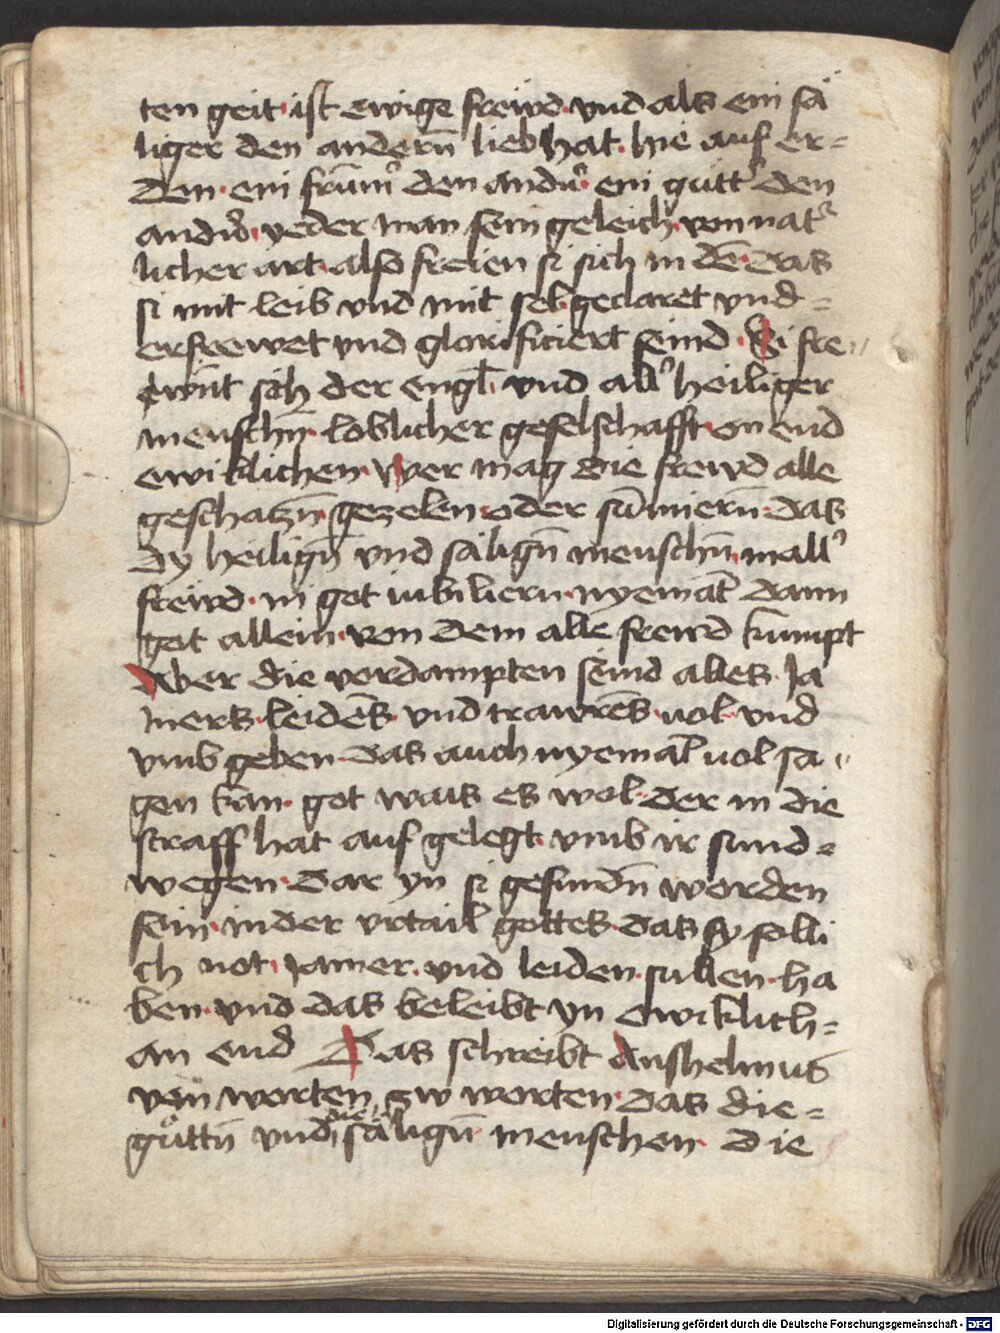 ten geit · ist ewige frewd · vnd als ein sä
liger den andern̄ lieb hat · hie auf er=
den · ein frum̄ den andn̄ · ein gutt den
andn̄ · yeder man sein geleich · von nat
licher art · also freien si sich in dē · das
si mit leib vnd mit sel · geclaret vnd =
erfrewet vnd glorificiert seind · Si fre〃
ewnt sich der engl̄ · vnd all heiliger
menschn̄ · loblicher geselschafft · on end
ewiklichen · Wer mag die frewd alle
geschatzn̄ · gezelen · oder sum̄iern̄ · das
dy heilign̄ vnd sälign̄ menschn̄ · in all
frewd · in got iubiliern · nyemāt dann
got allein · von dem alle frewd kumpt
Aber die verdampten seind alles · Ja
mers · leidēs · vnd trawrēs · uol · vnd
vmb geben · das auch nyemāt uol sa〃
gen kan · got wais es wol · der in die
straff hat auf gelegt · vmb ir sund =
wegen · dar yn si gefundn̄ worden
sein · in der vrtail gottes · das sy solli
ch not · Jamer · vnd leiden · sullen · ha
ben · vnd das beleibt yn ewiklich =
an end Das schreibt Anshelmus
von worten zw worten · das die =
gůttn̄ vnd die sälign̄ menschen · die
Digitalisierung gefördert durch die Deutsche Forschungsgemeinschaft - DFG